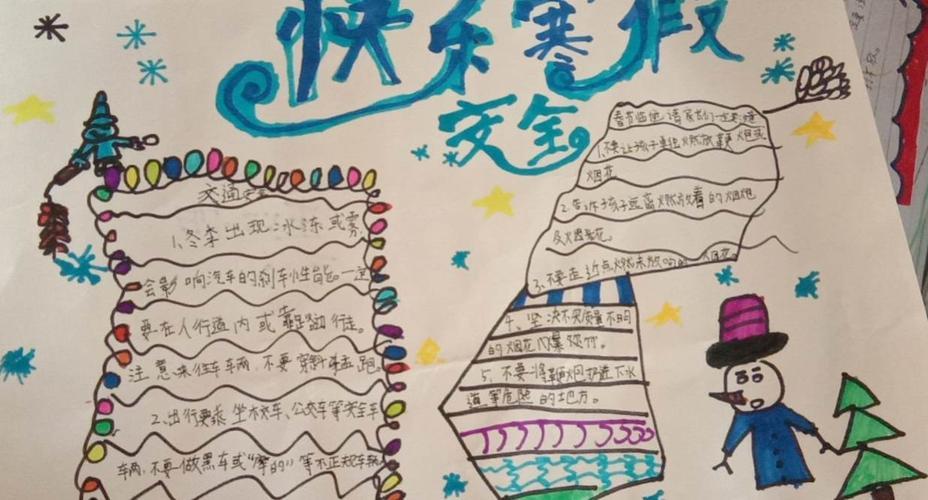 快乐寒假
安全
交通安全
1.冬季出现冰冻或雾,
会影响汽车的刹车性能一定
要在人行道内或靠路边行走。
注意来往车车两,不要穿斜猛跑。
2.出行要乘坐木交车、公交车等安全车
车两,不要做黑车或“摩的”等不正规车辆
春节临近,请家长们一定
1.不要让孩子单独燃放鞭炮或
烟花。
2.告诉孩子远离燃放着的烟炮
及烟花。
3.不要走近点燃未放响的烟花。
4、坚决不买质量不明
的烟花爆竹。
5、不要将鞭炮扔进下水
道等危险的地方。